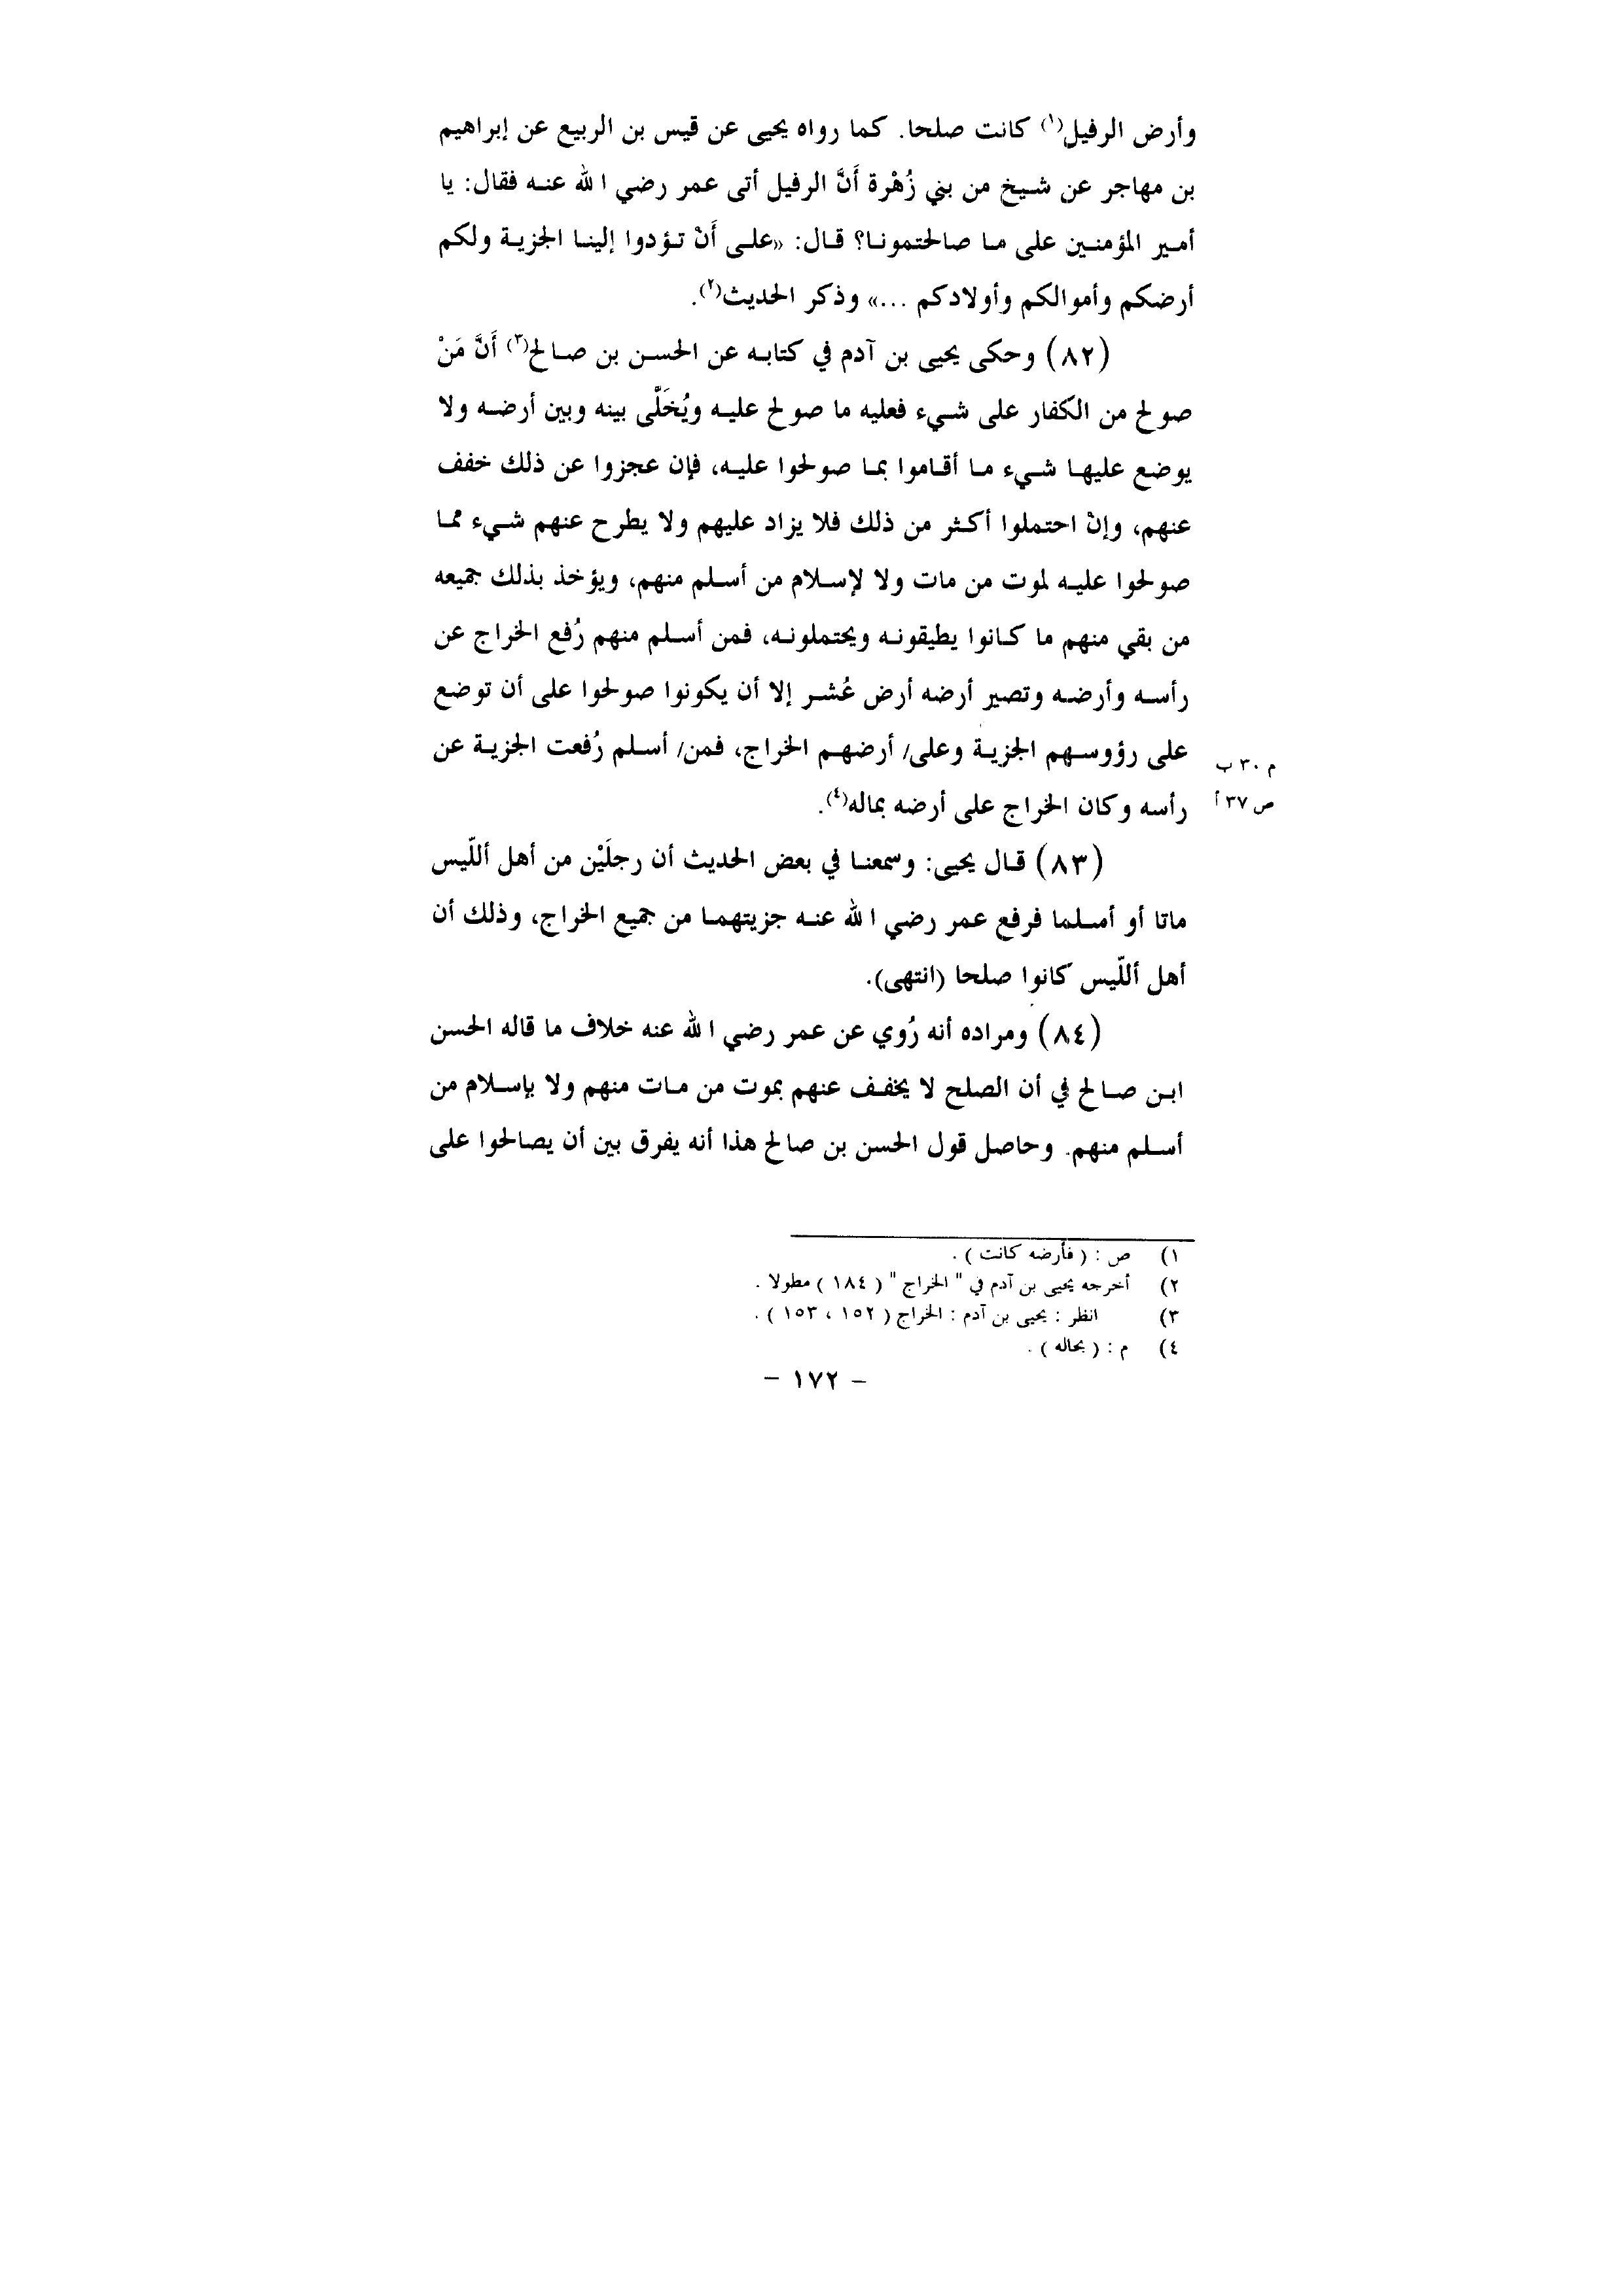 وأرض الرفيل(١) كانت صلحا. كما رواه يحيى عن قيس بن الربيع عن إبراهيم
بن مهاجر عن شيخ من بني زُهْرة أَنَّ الرفيل أتى عمر رضي الله عنه فقال: يا
أمير المؤمنين على ما صالحتمونا؟ قال: «على أَنْ تؤدوا إلينا الجزية ولكم
أرضكم وأموالكم وأولادكم ...» وذكر الحديث(٢).
(٨٢) وحكى يحيى بن آدم في كتابه عن الحسن بن صالح(٣) أَنَّ مَنْ
صولح من الكفار على شيء فعليه ما صولح عليه ويُخَلَّى بينه وبين أرضه ولا
يوضع عليها شيء ما أقاموا بما صولحوا عليه، فإن عجزوا عن ذلك خفف
عنهم، وإنْ احتملوا أكثر من ذلك فلا يزاد عليهم ولا يطرح عنهم شيء مما
صولحوا عليه لموت من مات ولا لإسلام من أسلم منهم، ويؤخذ بذلك جميعه
من بقي منهم ما كانوا يطيقونه ويحتملونه، فمن أسلم منهم رُفع الخراج عن
رأسه وأرضه وتصير أرضه أرض عُشر إلا أن يكونوا صولحوا على أن توضع
على رؤوسهم الجزية وعلى/ أرضهم الخراج، فمن/ أسلم رُفعت الجزية عن
م ٣٠ ب
رأسه وكان الخراج على أرضه بماله(٤).
ص ٣٧ أ
(٨٣) قال يحيى: وسمعنا في بعض الحديث أن رجلَيْن من أهل أللّيس
ماتا أو أسلما فرفع عمر رضي الله عنه جزيتهما من جميع الخراج، وذلك أن
أهل أللّيس كانوا صلحا (انتهى).
(٨٤) ومراده أنه رُوي عن عمر رضي الله عنه خلاف ما قاله الحسن
ابن صالح في أن الصلح لا يخفف عنهم بموت من مات منهم ولا بإسلام من
أسلم منهم. وحاصل قول الحسن بن صالح هذا أنه يفرق بين أن يصالحوا على
١) ص : ( فأرضه كانت ) .
٢) أخرجه يحيى بن آدم في " الخراج " ( ١٨٤ ) مطولا .
٣) انظر : يحيى بن آدم : الخراج ( ١٥٢ ، ١٥٣ ) .
٤) م : ( بحاله ) .
- ١٧٢ -